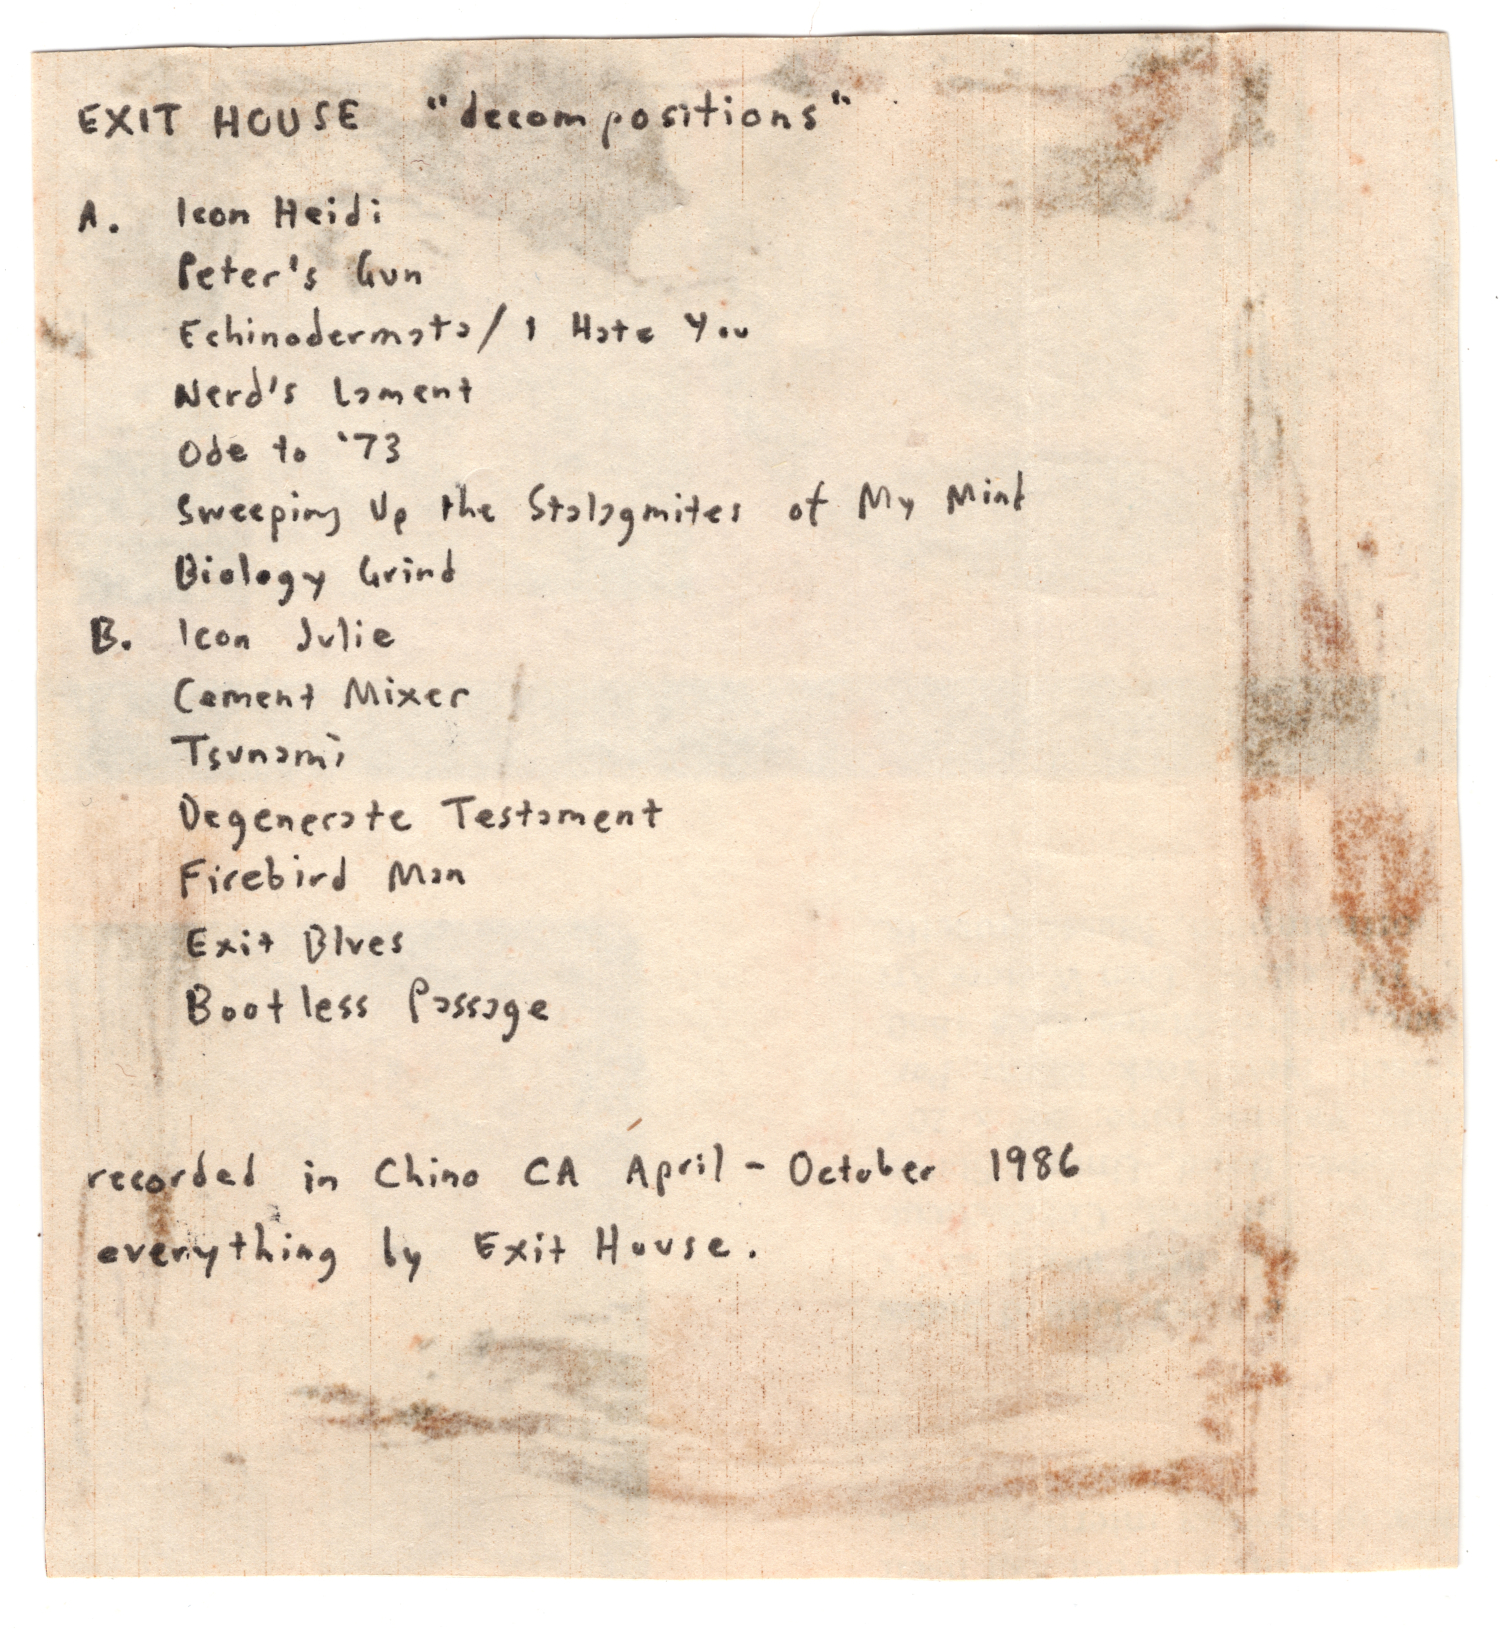 EXIT HOUSE "decompositions"
A. Icon Heidi
Peter's Gun
Echinodermata/I Hate You
Nerd's Lament
Ode to '73
Sweeping Up the Stalagmites of My Mind
Biology Grind
B. Icon Julie
Cement Mixer
Tsunami
Degenerate Testament
Firebird Man
Exit Blues
Bootless Passage
recorded in Chino CA April - October 1986
everything by Exit House.